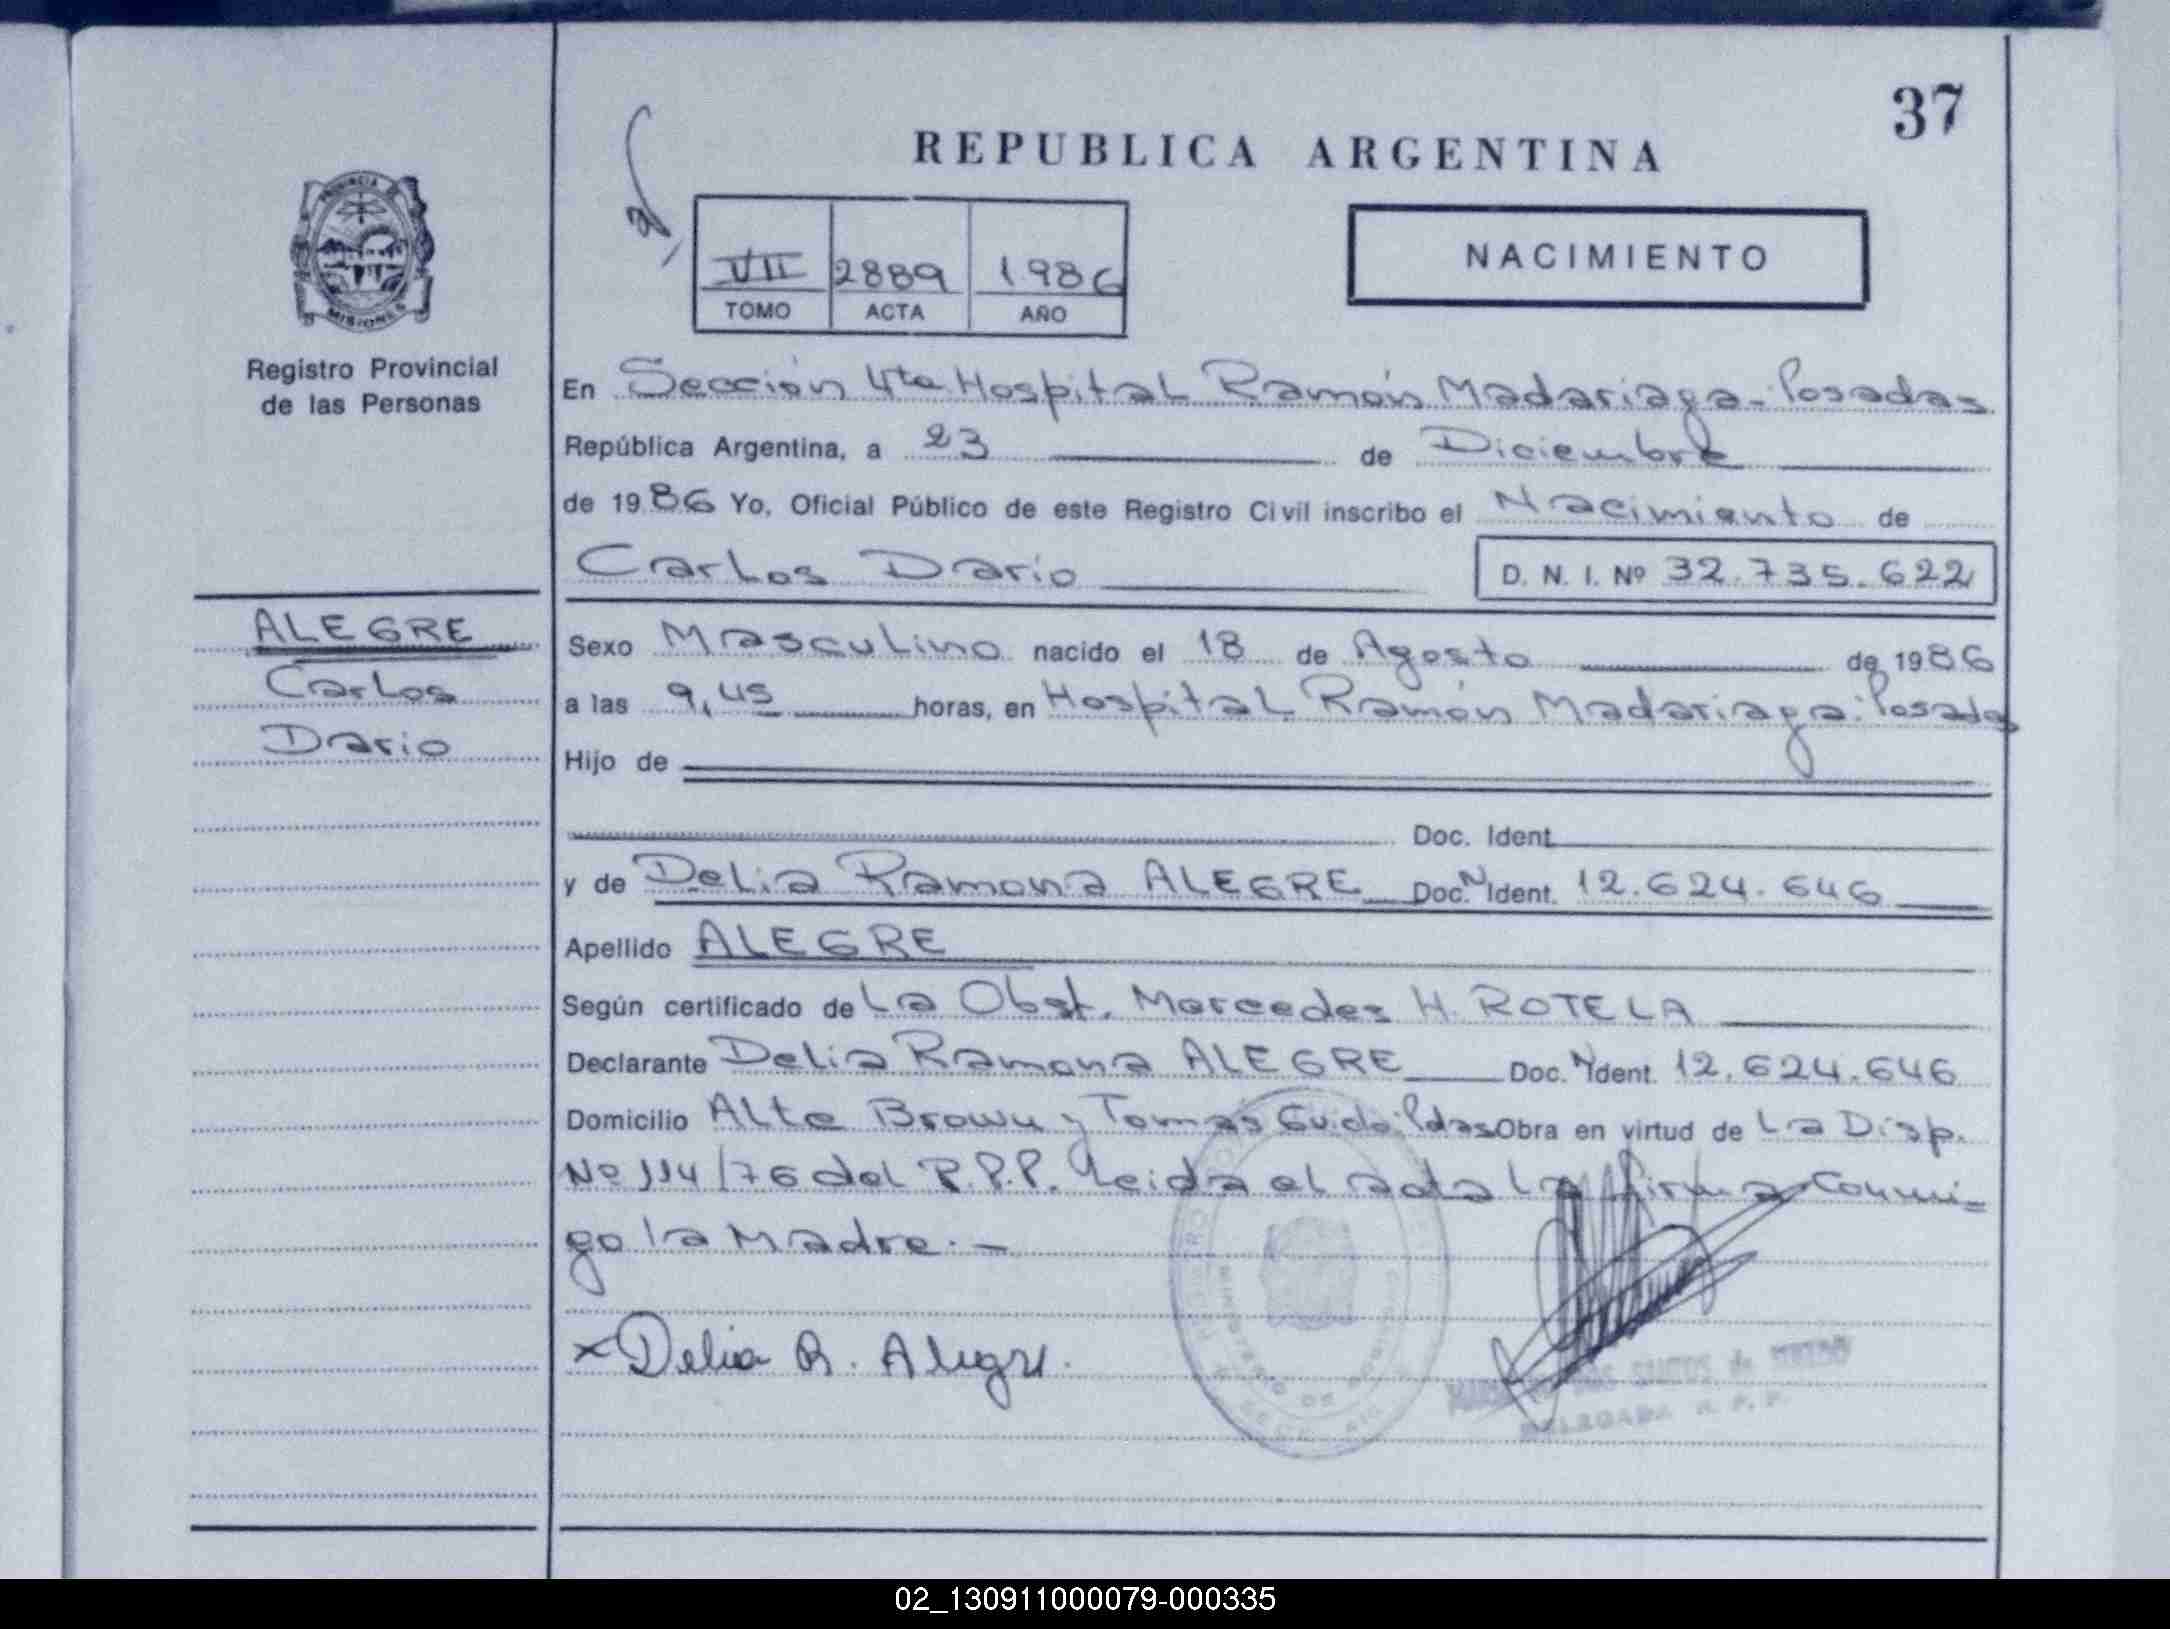 37
REPUBLICA ARGENTINA
PROVINCIA DE
MISIONES
VII 2889 1986
TOMO ACTA AÑO
NACIMIENTO
Registro Provincial
de las Personas
En Sección 4ta Hospital Ramón Madariaga - Posadas
República Argentina, a 23 de Diciembre
de 1986 Yo, Oficial Público de este Registro Civil inscribo el Nacimiento de
Carlos Dario D. N. I. Nº 32.735.622
ALEGRE
Carlos
Dario
Sexo Masculino nacido el 18 de Agosto de 1986
a las 9,45 horas, en Hospital Ramón Madariaga. Posadas
Hijo de
Doc. Ident.
y de Delia Ramona ALEGRE Doc. N Ident. 12.624.646
Apellido ALEGRE
Según certificado de La Obst. Mercedes H. ROTELA
Declarante Delia Ramona ALEGRE Doc. N Ident. 12.624.646
Domicilio Alte Brown y Tomás Guido. Pdas Obra en virtud de La Disp.
Nº 114/76 del R.P.P. Leida el acta la firma conmi-
go la Madre.-
x Delia R. Alegre.
DELEGADA R. P. P.
02_130911000079-000335